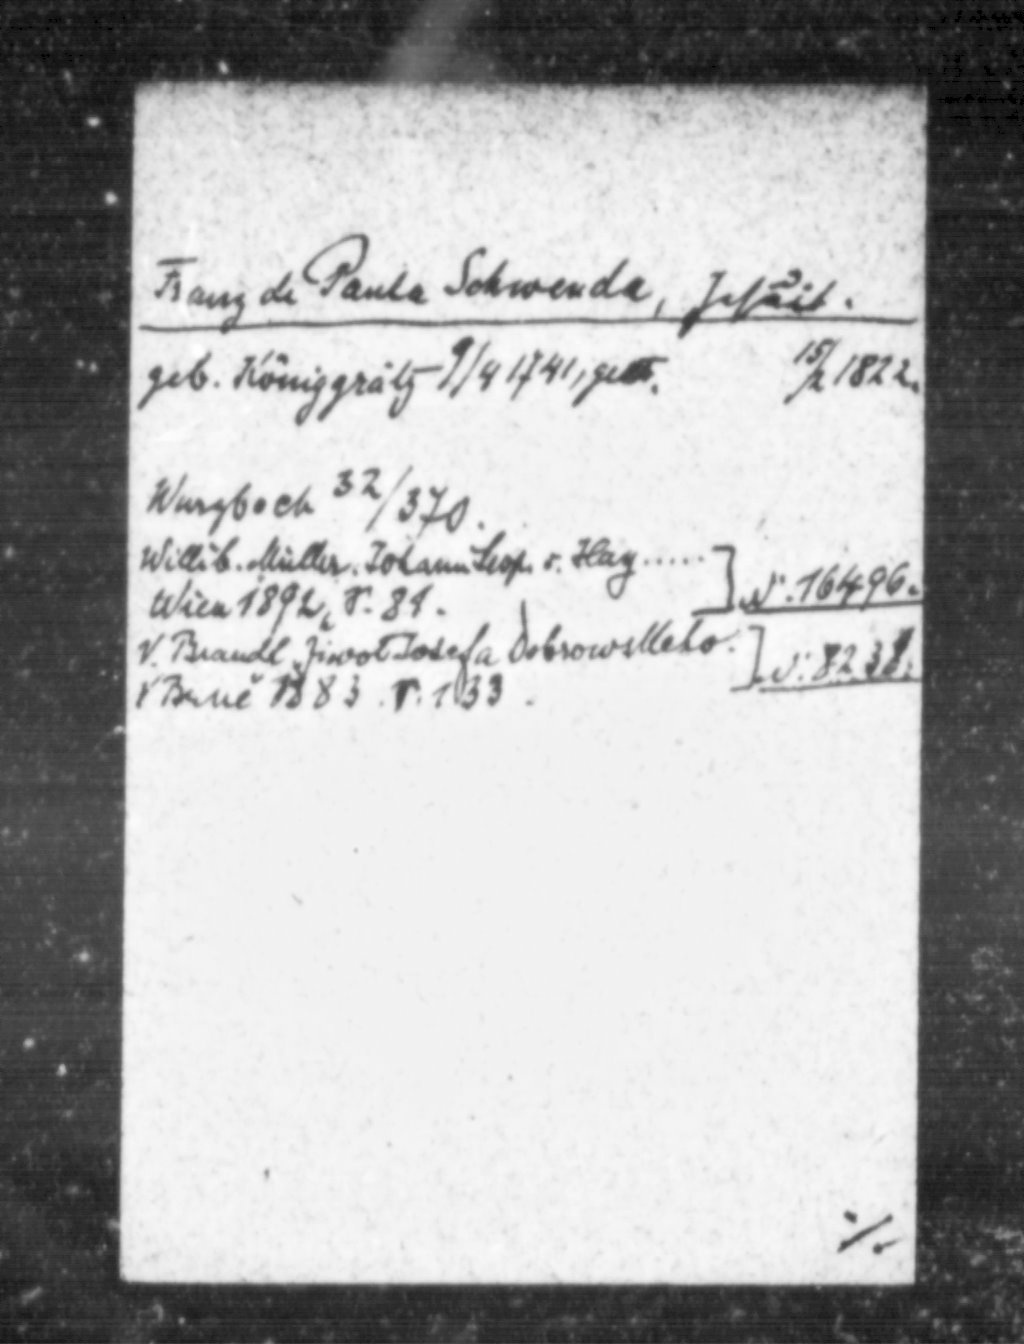 Franz de Paula Schwenda, Jesuit.
geb. Königgrätz 9/4 1741, gest. 15/2 1822.
Wurzbach 32/370.
Willib. Müller, Johann Leop. v. Hay ......
Wien 1892, S. 81. ] N. 16496.
V. Brandl, Život Josefa Dobrowského.
V Brně 1883. S. 133. ] N. 8238.